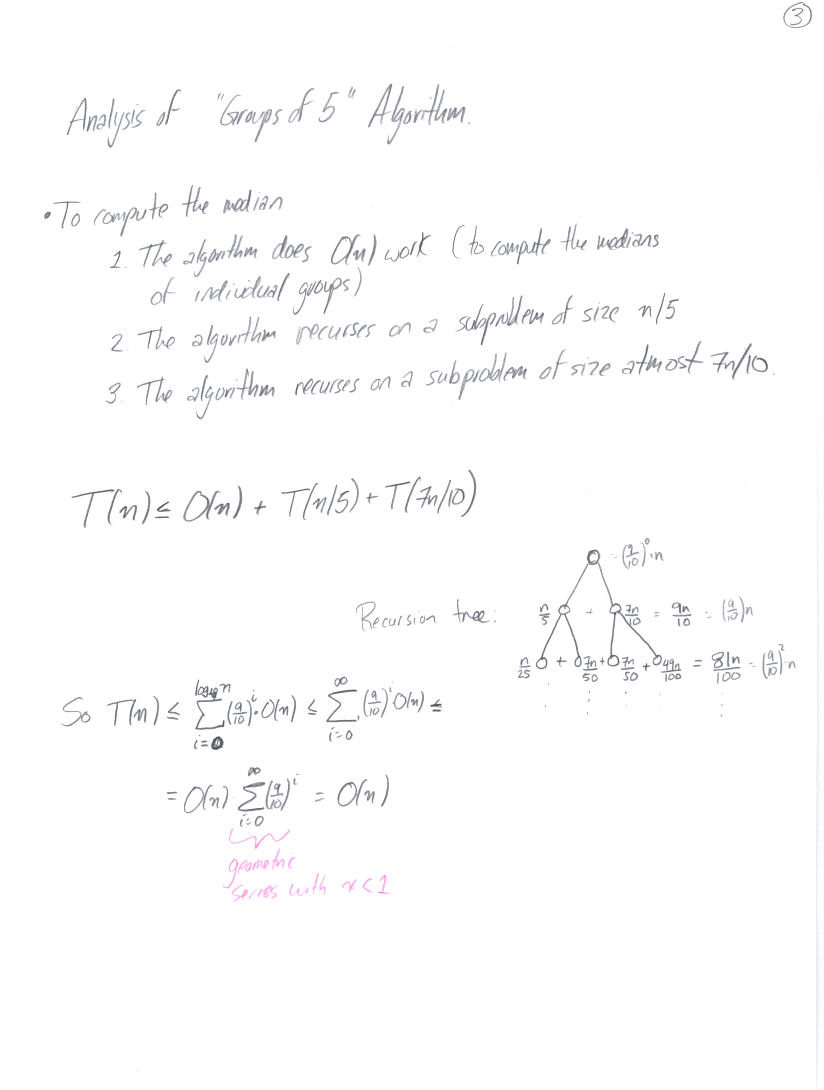 3
Analysis of "Groups of 5" Algorithm.
• To compute the median
1. The algorithm does O(n) work (to compute the medians
of individual groups)
2. The algorithm recurses on a subproblem of size n/5
3. The algorithm recurses on a subproblem of size atmost 7n/10.
T(n) ≤ O(n) + T(n/5) + T(7n/10)
Recursion tree:
= (9/10)^0 · n
n/5 + 7n/10 = 9n/10 = (9/10)n
n/25 + 7n/50 + 7n/50 + 49n/100 = 81n/100 = (9/10)^2 · n
So T(n) ≤ ∑_{i=0} (9/10)^i · O(n) ≤ ∑_{i=0}^∞ (9/10)^i O(n) ≤
= O(n) ∑_{i=0}^∞ (9/10)^i = O(n)
geometric
series with x < 1